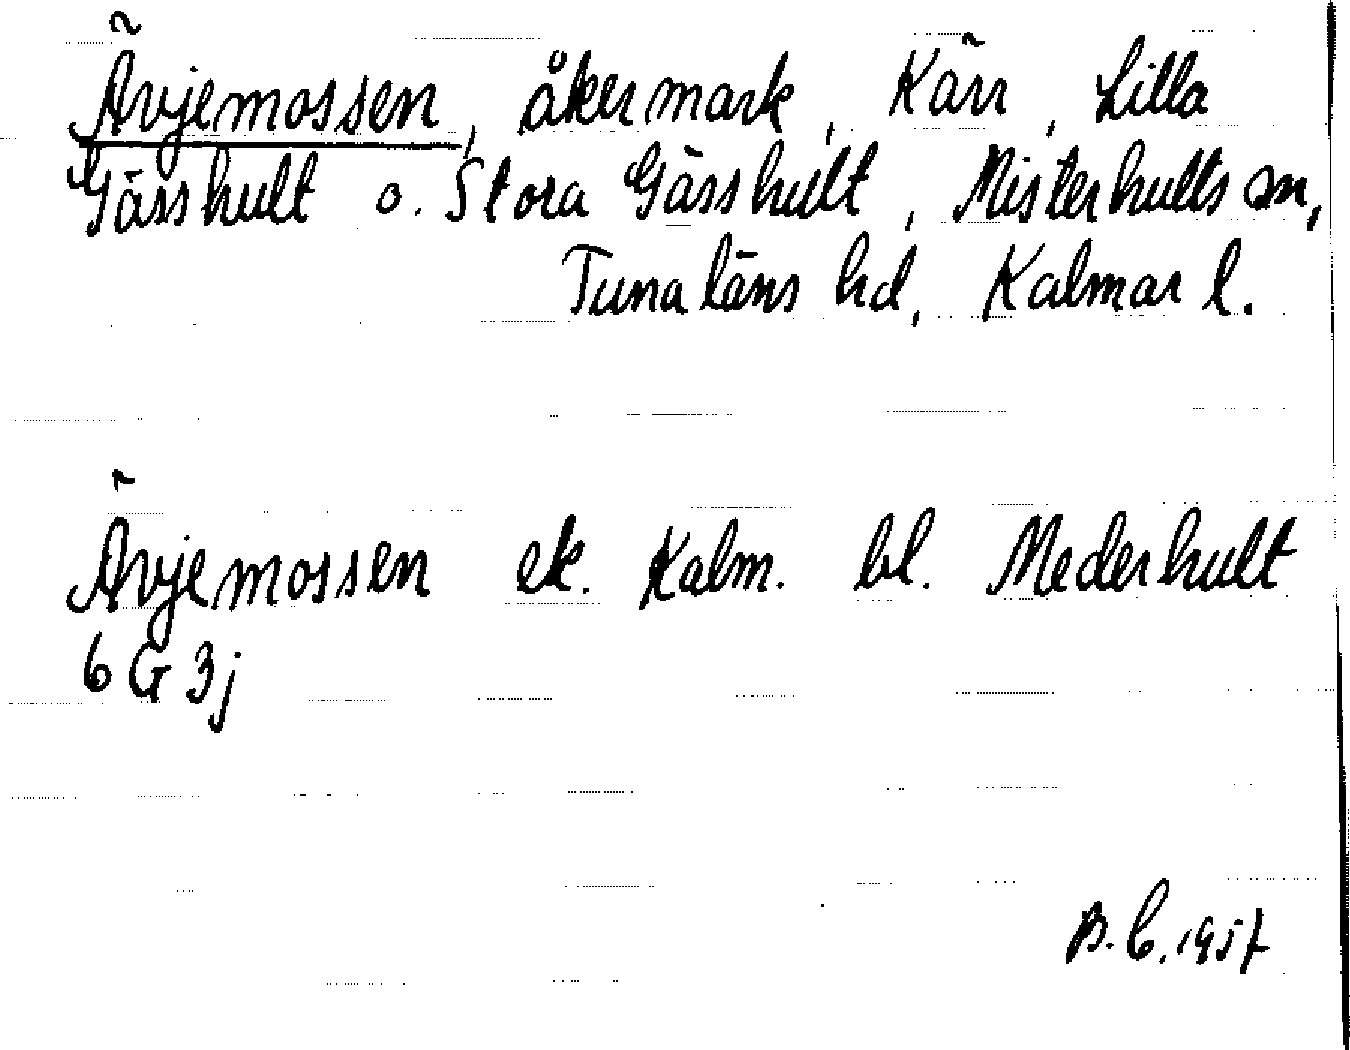 Ävjemossen, åkermark, Kärr, Lilla
Gässhult o. Stora Gässhult, Misterhults sn,
Tunaläns hd, Kalmar l.
Ävjemossen ek. Kalm. bl. Mederhult
6 G 3j
B.C. 1957